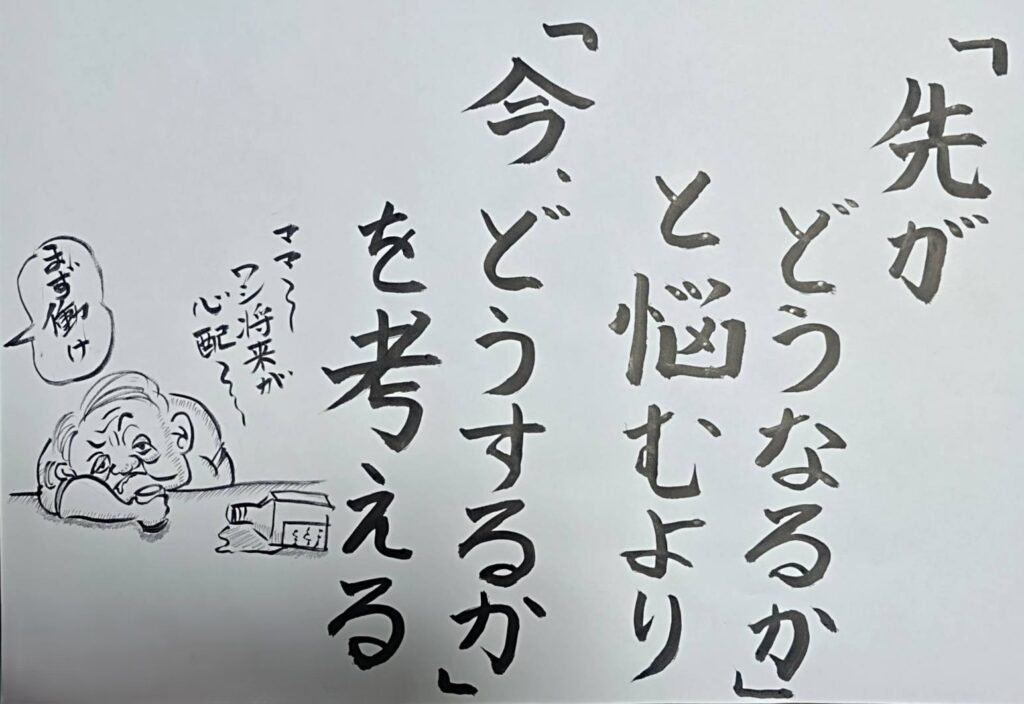 「先が
どうなるか」
と悩むより
「今、どうするか」
を考える
ママ〜
ワシ将来が
心配〜〜
まず働け